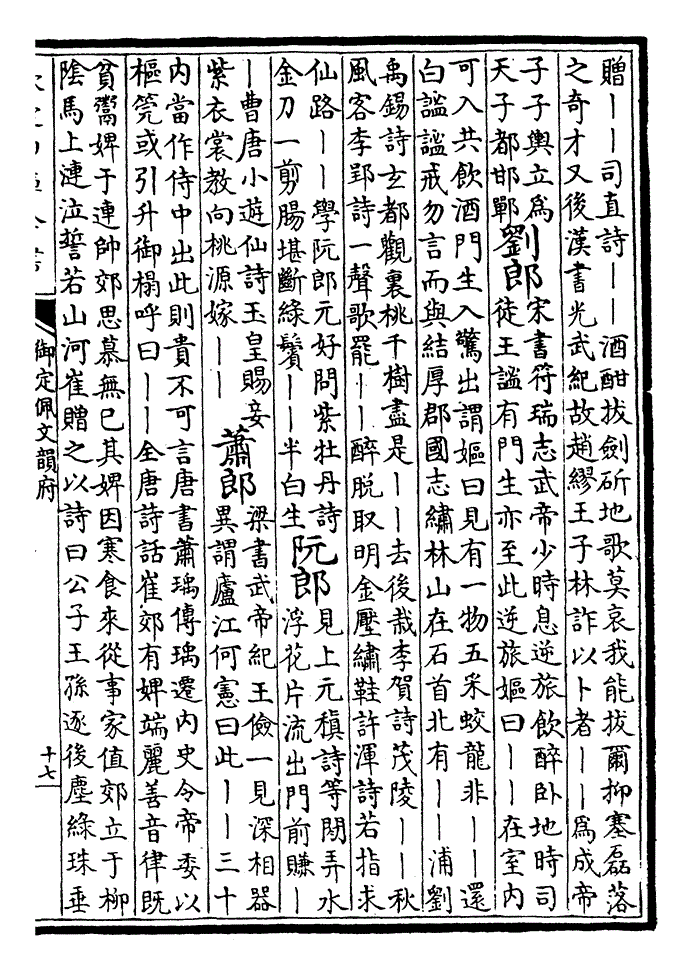 贈丨丨司直詩丨丨酒酣拔劍斫地歌莫哀我能拔爾抑塞磊落
之奇才又後漢書光武紀故趙繆王子林詐以卜者丨丨為成帝
子子輿立為
天子都邯鄲
劉郎
宋書符瑞志武帝少時息逆旅飲醉卧地時司
徒王謐有門生亦至此逆旅嫗曰丨丨在室内
可入共飲酒門生入驚出謂嫗曰見有一物五采蛟龍非丨丨還
白謐謐戒勿言而與結厚郡國志繡林山在石首北有丨丨浦劉
禹錫詩玄都觀裏桃千樹盡是丨丨去後栽李賀詩茂陵丨丨秋
風客李郢詩一聲歌罷丨丨醉脱取明金壓繡鞋許渾詩若指求
仙路丨丨學阮郎元好問紫牡丹詩
金刀一剪腸堪斷綠鬢丨丨半白生
阮郎
見上元稹詩等閒弄水
浮花片流出門前賺丨
丨曹唐小遊仙詩玉皇賜妾
紫衣裳教向桃源嫁丨丨
蕭郎
梁書武帝紀王儉一見深相器
異謂廬江何憲曰此丨丨三十
内當作侍中出此則貴不可言唐書蕭瑀傳瑀遷内史令帝委以
樞筦或引升御榻呼曰丨丨全唐詩話崔郊有婢端麗善音律既
貧鬻婢于連帥郊思慕無已其婢因寒食來從事家值郊立于柳
陰馬上漣泣誓若山河崔贈之以詩曰公子王孫逐後塵綠珠垂
御定佩文韻府
十七